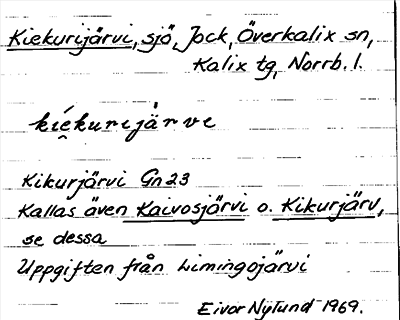 Kiekurijärvi, sjö, Jock, Överkalix sn,
Kalix tg, Norrb. l.
kiékurijärve
Kikurjärvi Gn23
Kallas även Kaivosjärvi o. Kikurjärv,
se dessa
Uppgiften från Limingojärvi
Eivor Nylund 1969.